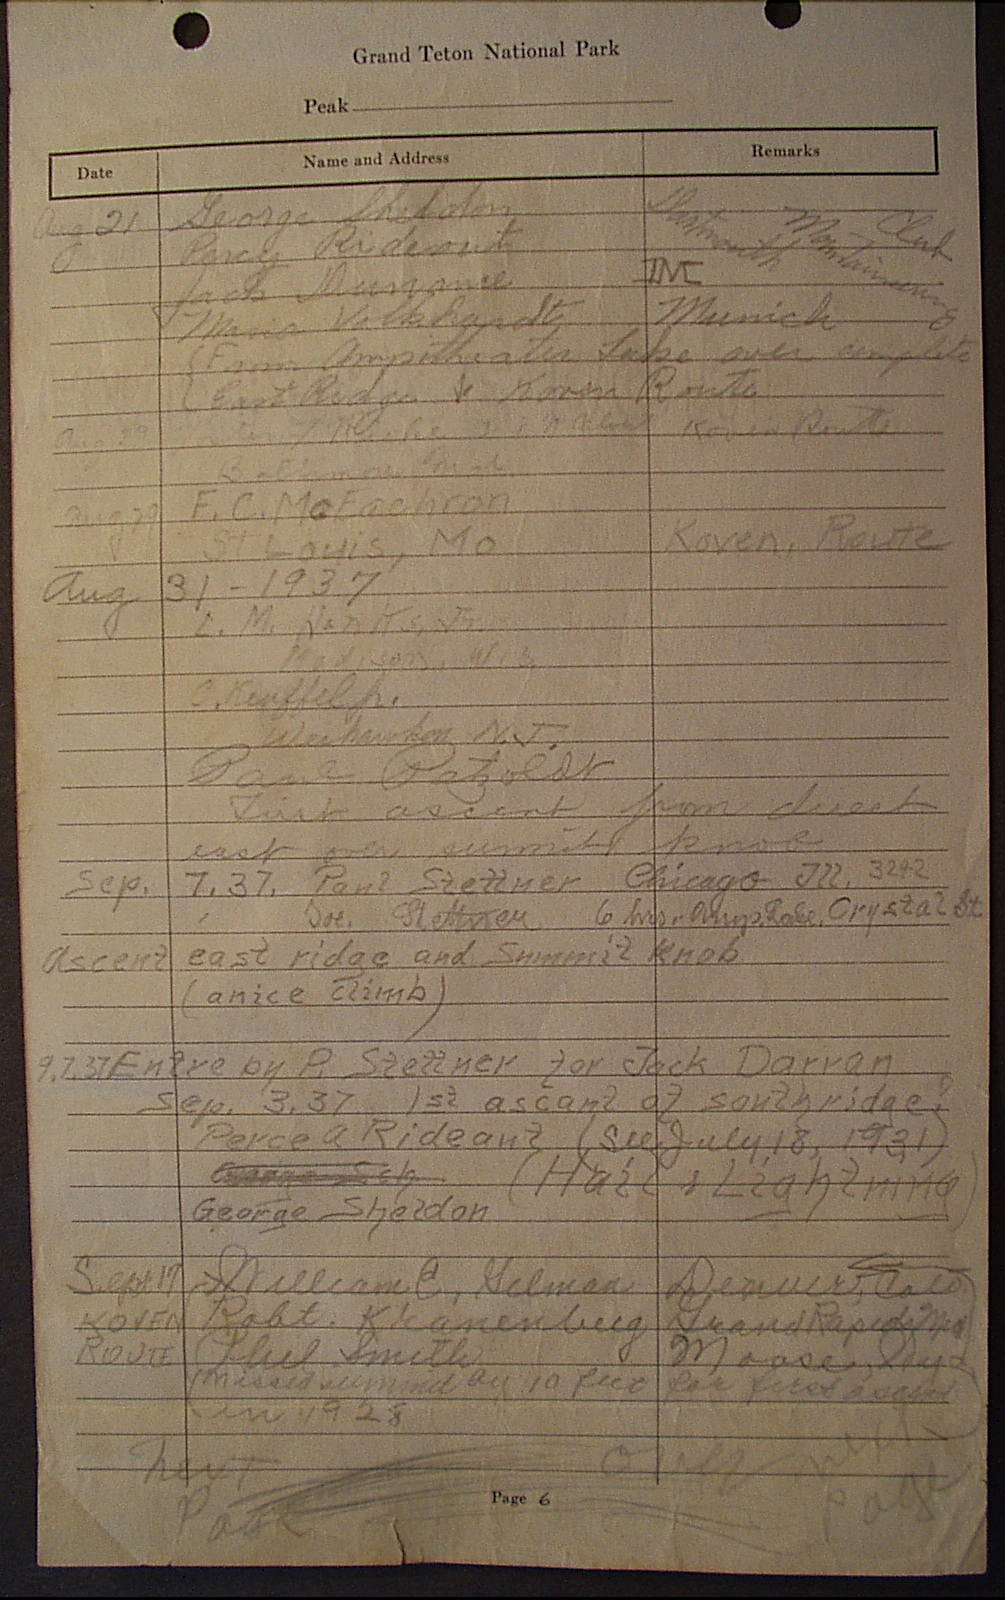 Grand Teton National Park
Peak
Date Name and Address Remarks
Aug 21 George Sheldon Dartmouth Mountaineering Club
Percy Rideout
Jack Durrance DMC
Maria Volkhardt Munich
(From Ampitheater Lake over complete
East Ridge & Koven Route
Aug 29 Koven Route
Baltimore Md.
Aug 29 F. C. McEachron
St Louis, Mo Koven, Route
Aug 31 - 1937
L. M. Hanks, Jr.
Madison, Wis
C. Keuffel Jr.
Weehawken N.J.
Paul Petzoldt
First ascent from direct
east over summit knob
Sep. 7.37. Paul Stettner Chicago Ill. 3242
Joe. Stettner 6 hrs. - Amp. Lake. Crystal St
Ascent east ridge and Summit Knob
(a nice climb)
9.7.37 Entre by P. Stettner for Jack Darran
Sep. 3.37 1st ascant of south ridge?
Perce a Rideant (See July 18, 1931)
(Hail & Lightning)
George Sheldon
Sept 17 William C. Gilman Denver, Colo
KOVEN Robt. Kranenburg Grand Rapids Mich
ROUTE Phil Smith Moose, Wyo
(Missed summit by 10 feet for first ascent
in 1928
Next Over next
Page Page
Page 6